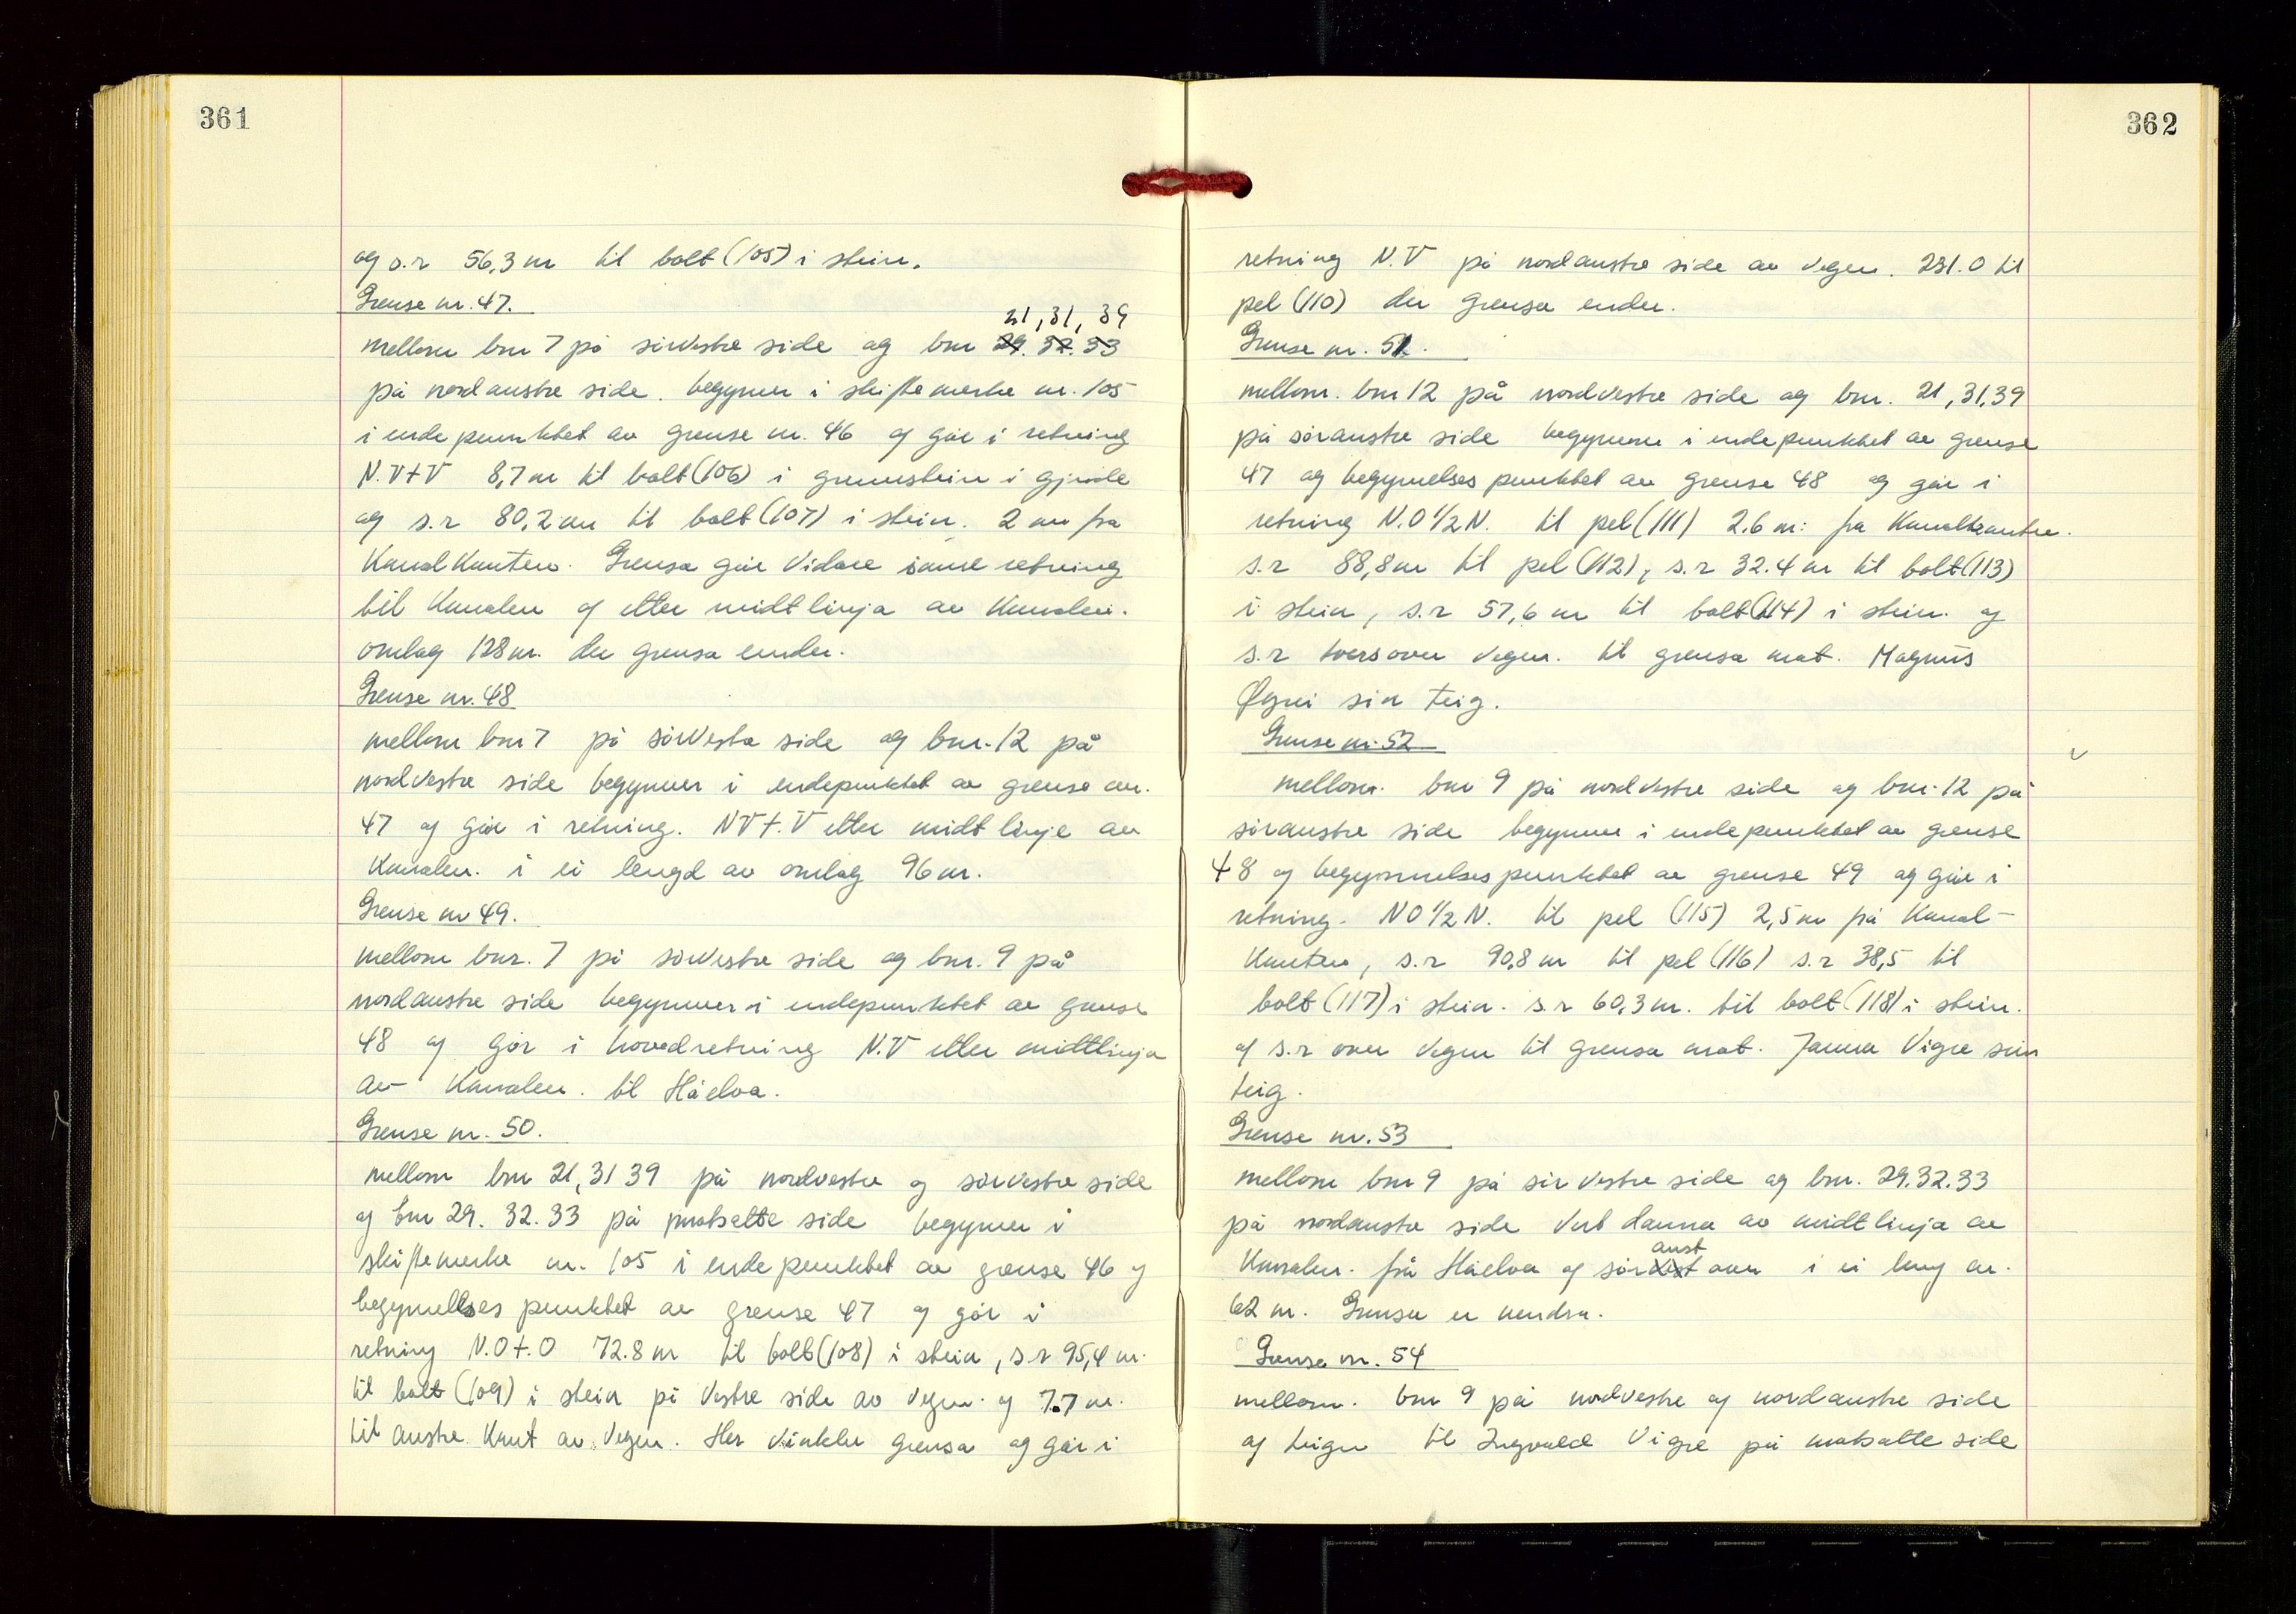 361
og s.r 56,3 m til bolt (105) i stein.
Grense nr. 47.
21, 31, 39
mellom bnr 7 på sørvestre side og bnr 29. 32. 33
på nordaustre side. begynner i skiftemerke nr. 105
i endepunktet av grense nr. 46 og går i retning
N.V t V 8,7 m til bolt (106) i grunnstein i gjerde
og s.r 80,2 m til bolt (107) i stein. 2 m fra
Kanalkanten. Grensa går vidare i same retning
til Kanalen og etter midtlinja av Kanalen.
omlag 128 m. der grensa ender.
Grense nr. 48
mellom bnr 7 på sørvestre side og bnr. 12 på
nordvestre side begynner i endepunktet av grense nr.
47 og går i retning. NV t. V etter midtlinje av
Kanalen. i ei lengd av omlag 96 m.
Grense nr 49.
mellom bnr. 7 på sørvestre side og bnr. 9 på
nordaustre side begynner i endepunktet av grense
48 og går i hovedretning N.V etter midtlinja
av Kanalen. til Håelva.
Grense nr. 50.
mellom bnr 21, 31 39 på nordvestre og sørvestre side
og bnr 29. 32. 33 på motsatte side begynner i
skiftemerke nr. 105 i endepunktet av grense 46 og
begynnelses punktet av grense 47 og går i
retning N.O t. O 72.8 m til bolt (108) i stein, s.r 95,4 m.
til bolt (109) i stein på vestre side av vegen. og 7.7 m.
til austre kant av vegen. Her vinkler grensa og går i
362
retning N.V på nordaustre side av vegen. 231.0 til
pel (110) der grensa ender.
Grense nr. 51.
mellom. bnr 12 på nordvestre side og bnr. 21, 31, 39
på søraustre side begynner i endepunktet av grense
47 og begynnelses punktet av grense 48 og går i
retning N.O 1/2 N. til pel (111) 2.6 m: fra Kanalkanten.
s.r 88,8 m til pel (112), s.r 32.4 m til bolt (113)
i stein, s.r 57,6 m til bolt (114) i stein. og
s.r tversover vegen. til grensa mot. Magnus
Øgrei sin teig.
Grense nr. 52
mellom. bnr 9 på nordvestre side og bnr. 12 på
søraustre side begynner i endepunktet av grense
48 og begynnelsespunktet av grense 49 og går i
retning. NO 1/2 N. til pel (115) 2,5 m frå Kanal-
Kanten, s.r 90,8 m til pel (116) s.r 38,5 til
bolt (117) i stein. s.r 60,3 m. til bolt (118) i stein.
og s.r over vegen til grensa mot. Janna Vigre sin
teig.
Grense nr. 53
mellom bnr 9 på sør vestre side og bnr. 29. 32. 33
på nordaustre side vert danna av midtlinja av
Kanalen. frå Håelva og sørvest over i ei leng av.
aust
62 m. Grensa er uendra.
Grense nr. 54
mellom. bnr 9 på nordvestre og nordaustre side
og teigen til Ingvald Vigre på motsatte side